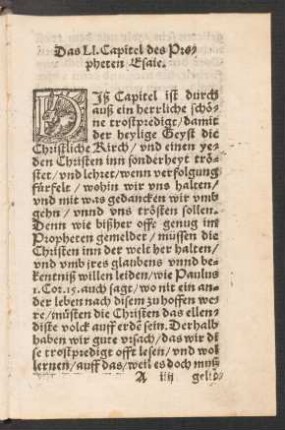 Das LI. Capitel des Pro⸗
pheten Esaie.
DIß Capitel ist durch
auß ein herrliche schö⸗
ne trostpredigt / damit
der heylige Geyst die
Christliche Kirch / vnd einen ye⸗
den Christen inn sonderheyt trö⸗
stet / vnd lehret / wenn verfolgung
fürfelt / wohin wir vns halten /
vnd mit was gedancken wir vmb
gehn / vnnd vns trösten sollen.
Denn wie bißher offt genug im
Propheten gemeldet / müssen die
Christen inn der welt her halten /
vnd vmb jres glaubens vnnd be⸗
kentniß willen leiden / wie Paulus
1. Cor. 15. auch sagt / wo nit ein an⸗
der leben nach disem zu hoffen we⸗
re / müsten die Christen das ellen⸗
diste volck auff erdē sein. Derhalb
haben wir gute vrsach / das wir di⸗
se trostpredigt offt lesen / vnd wol
lernen / auff das / weil es doch muß
A iiij gelid⸗